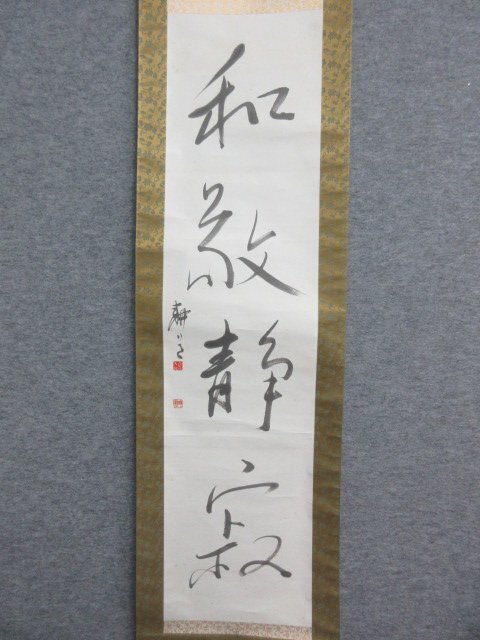 和敬静寂